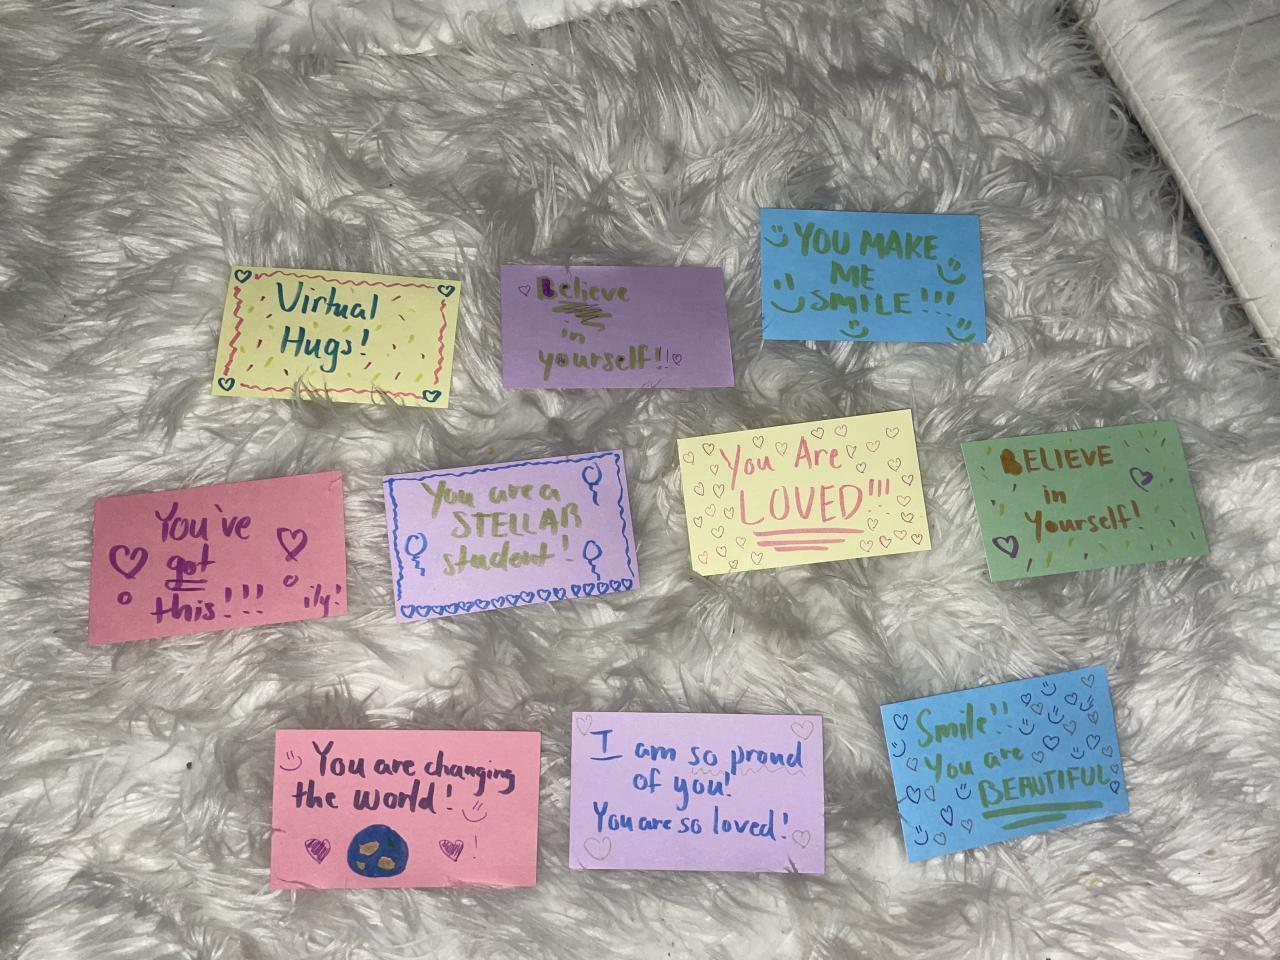 Virtual
Hugs!
Believe
in
yourself!!
YOU MAKE
ME
SMILE!!!
You've
got
this!!!
ily!
You are a
STELLAR
student!
You Are
LOVED!!!
BELIEVE
in
Yourself!
You are changing
the world!
!
I am so proud
of you!
You are so loved!
Smile!!
You are
BEAUTIFUL